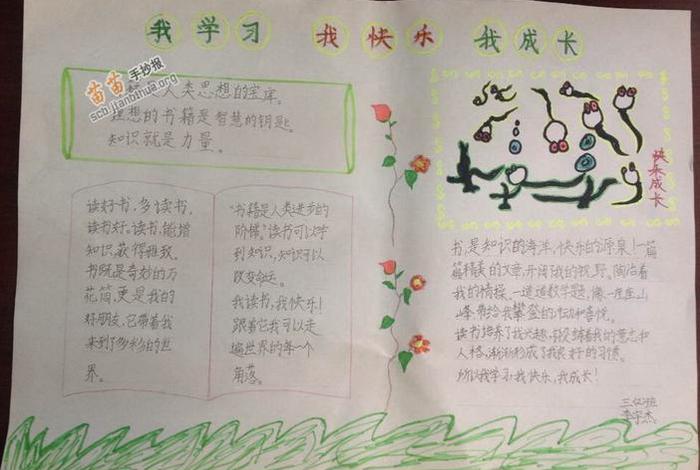 我学习 我快乐 我成长
苗苗手抄报
scb.jianbihua.org
人类思想的宝库。
理想的书籍是智慧的钥匙。
知识就是力量。
读好书,多读书,
读书好。读书,能增
知识,获得雅致。
书既是奇妙的万
花筒,更是我的
好朋友,它带着我
来到了多彩的世
界。
"书籍是人类进步的
阶梯。"读书可以学
到知识,知识可以
改变命运。
我读书,我快乐!
跟着它我可以走
遍世界的每一个
角落。
快乐成长
书,是知识的海洋,快乐的源泉!一篇
篇精美的文章,开阔我的视野。陶冶着
我的情操。一道道数学题,像一座座山
峰,带给我攀登的冲动和喜悦。
读书培养了我兴趣,锻炼着我的意志和
人格,渐渐形成了我良好的习惯。
所以我学习,我快乐,我成长!
三
李宇杰